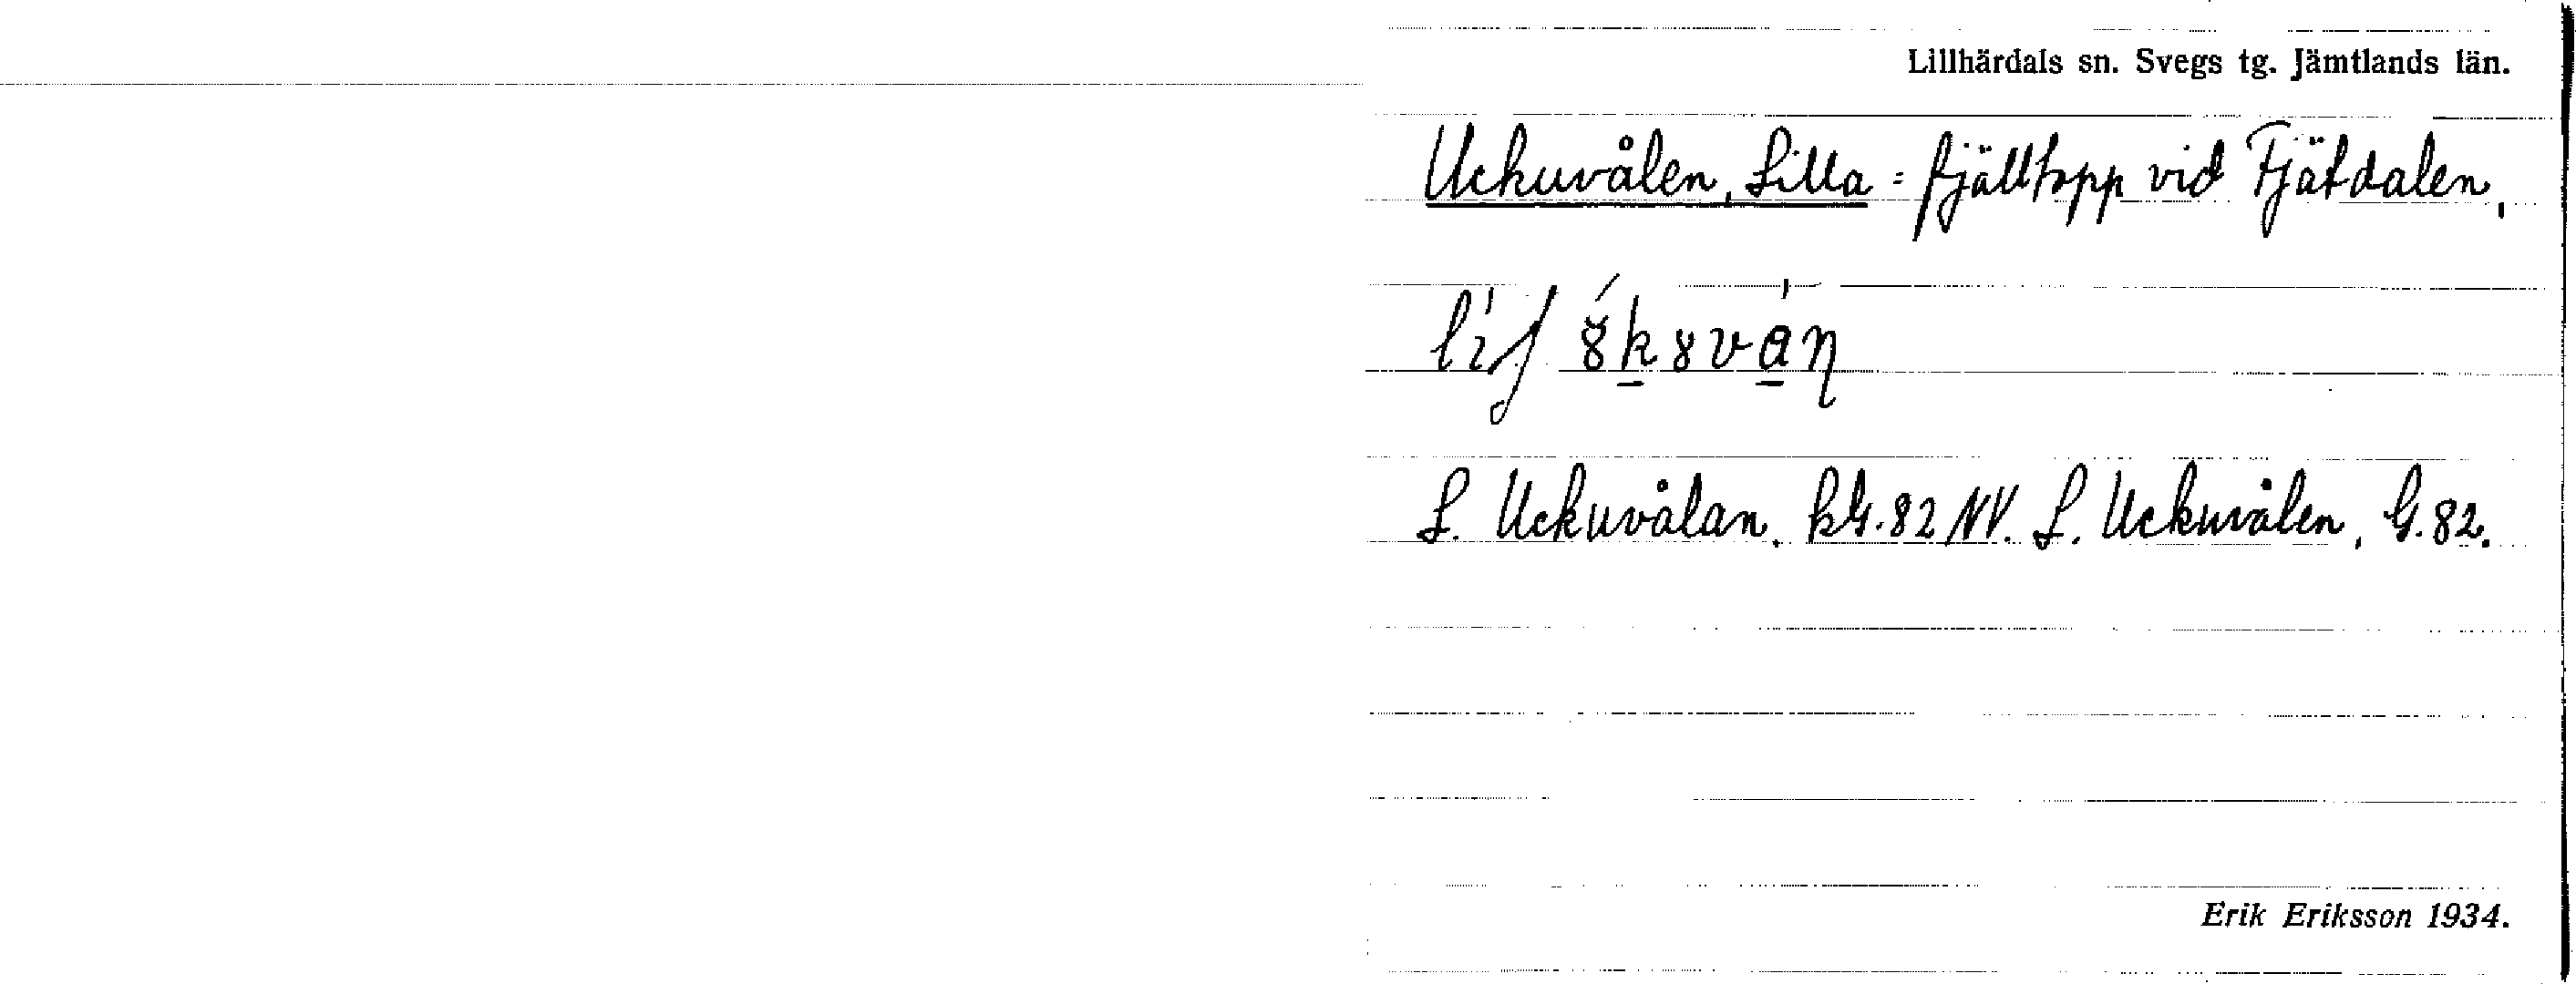 Lillhärdals sn. Svegs tg. Jämtlands län.
Uckuvålen, Lilla = fjälltopp vid Fjätdalen,
L. Uckuvålan. kG. 82 NV. L. Uckuvålen, G. 82.
Erik Eriksson 1934.